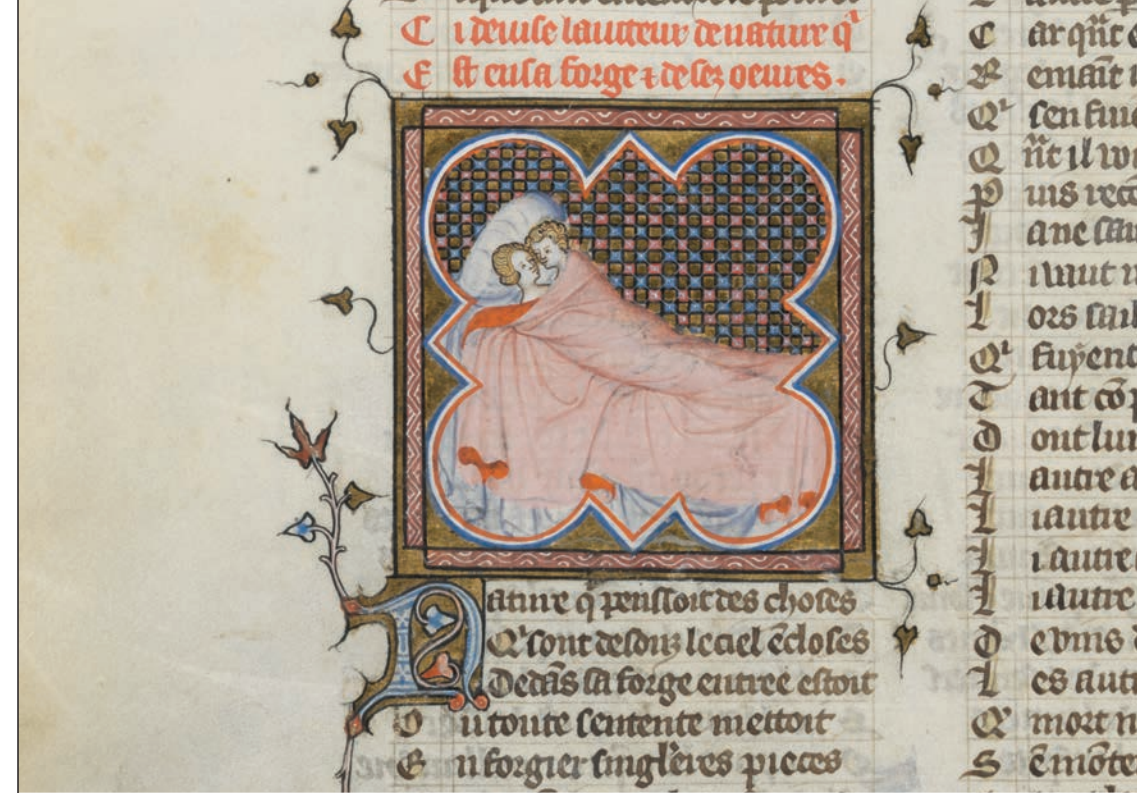 C i deuise laucteur de nature qͥ
E st en sa forge ⁊ de sez oeures.
Nature q̄ penssoit des choses
Qͥ sont desouz le ciel ēcloses
Dedās sa forge entree estoit
O u toute sentente mettoit
E n forgier singl'eres pieces
C ar qn̄t
R emaīt
Qͥ sen fui
Q n̄t il
P uis
J a ne
N i vaut
L ors
Qͥ fuyent
T ant cō
D ont
L autre
L iautre
L i autre
L iautre
D e vins
L es
Q mort
S ē